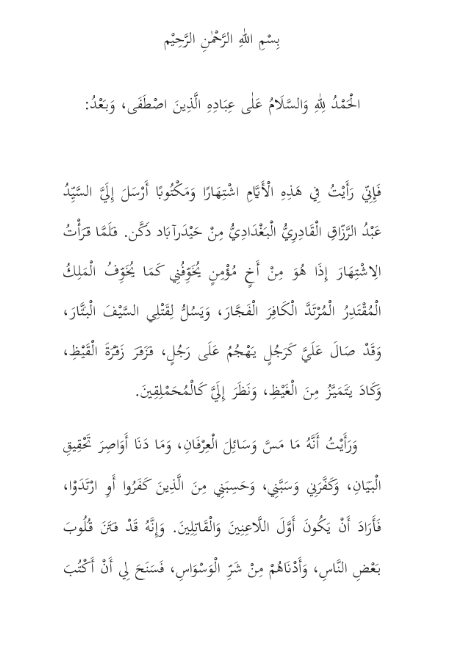 بِسْمِ اللهِ الرَّحْمٰنِ الرَّحِيْمِ
الْحَمْدُ لِلهِ وَالسَّلَامُ عَلٰى عِبَادِهِ الَّذِينَ اصْطَفَى، وَبَعْدُ:
فَإِنِّي رَأَيْتُ فِي هَذِهِ الْأَيَّامِ اشْتِهَارًا وَمَكْتُوبًا أَرْسَلَ إِلَيَّ السَّيِّدُ
عَبْدُ الرَّزَّاقِ الْقَادِرِيُّ الْبَغْدَادِيُّ مِنْ حَيْدَرآبَاد دَكَّن. فَلَمَّا قَرَأْتُ
الِاشْتِهَارَ إِذَا هُوَ مِنْ أَخٍ مُؤْمِنٍ يُخَوِّفُنِي كَمَا يُخَوِّفُ الْمَلِكُ
الْمُقْتَدِرُ الْمُرْتَدَّ الْكَافِرَ الْفَجَّارَ، وَيَسُلُّ لِقَتْلِي السَّيْفَ الْبَتَّارَ،
وَقَدْ صَالَ عَلَيَّ كَرَجُلٍ يَهْجُمُ عَلَى رَجُلٍ، فَزَفَرَ زَفْرَةَ الْقَيْظِ،
وَكَادَ يَتَمَيَّزُ مِنَ الْغَيْظِ، وَنَظَرَ إِلَيَّ كَالْمُحَمْلِقِينَ.
وَرَأَيْتُ أَنَّهُ مَا مَسَّ وَسَائِلَ الْعِرْفَانِ، وَمَا دَنَا أَوَاصِرَ تَحْقِيقِ
الْبَيَانِ، وَكَفَّرَنِي وَسَبَّنِي، وَحَسِبَنِي مِنَ الَّذِينَ كَفَرُوا أَوِ ارْتَدَوْا،
فَأَرَادَ أَنْ يَكُونَ أَوَّلَ اللَّاعِنِينَ وَالْقَاتِلِينَ. وَإِنَّهُ قَدْ فَتَنَ قُلُوبَ
بَعْضِ النَّاسِ، وَأَدْنَاهُمْ مِنْ شَرِّ الْوَسْوَاسِ، فَسَنَحَ لِي أَنْ أَكْتُبَ